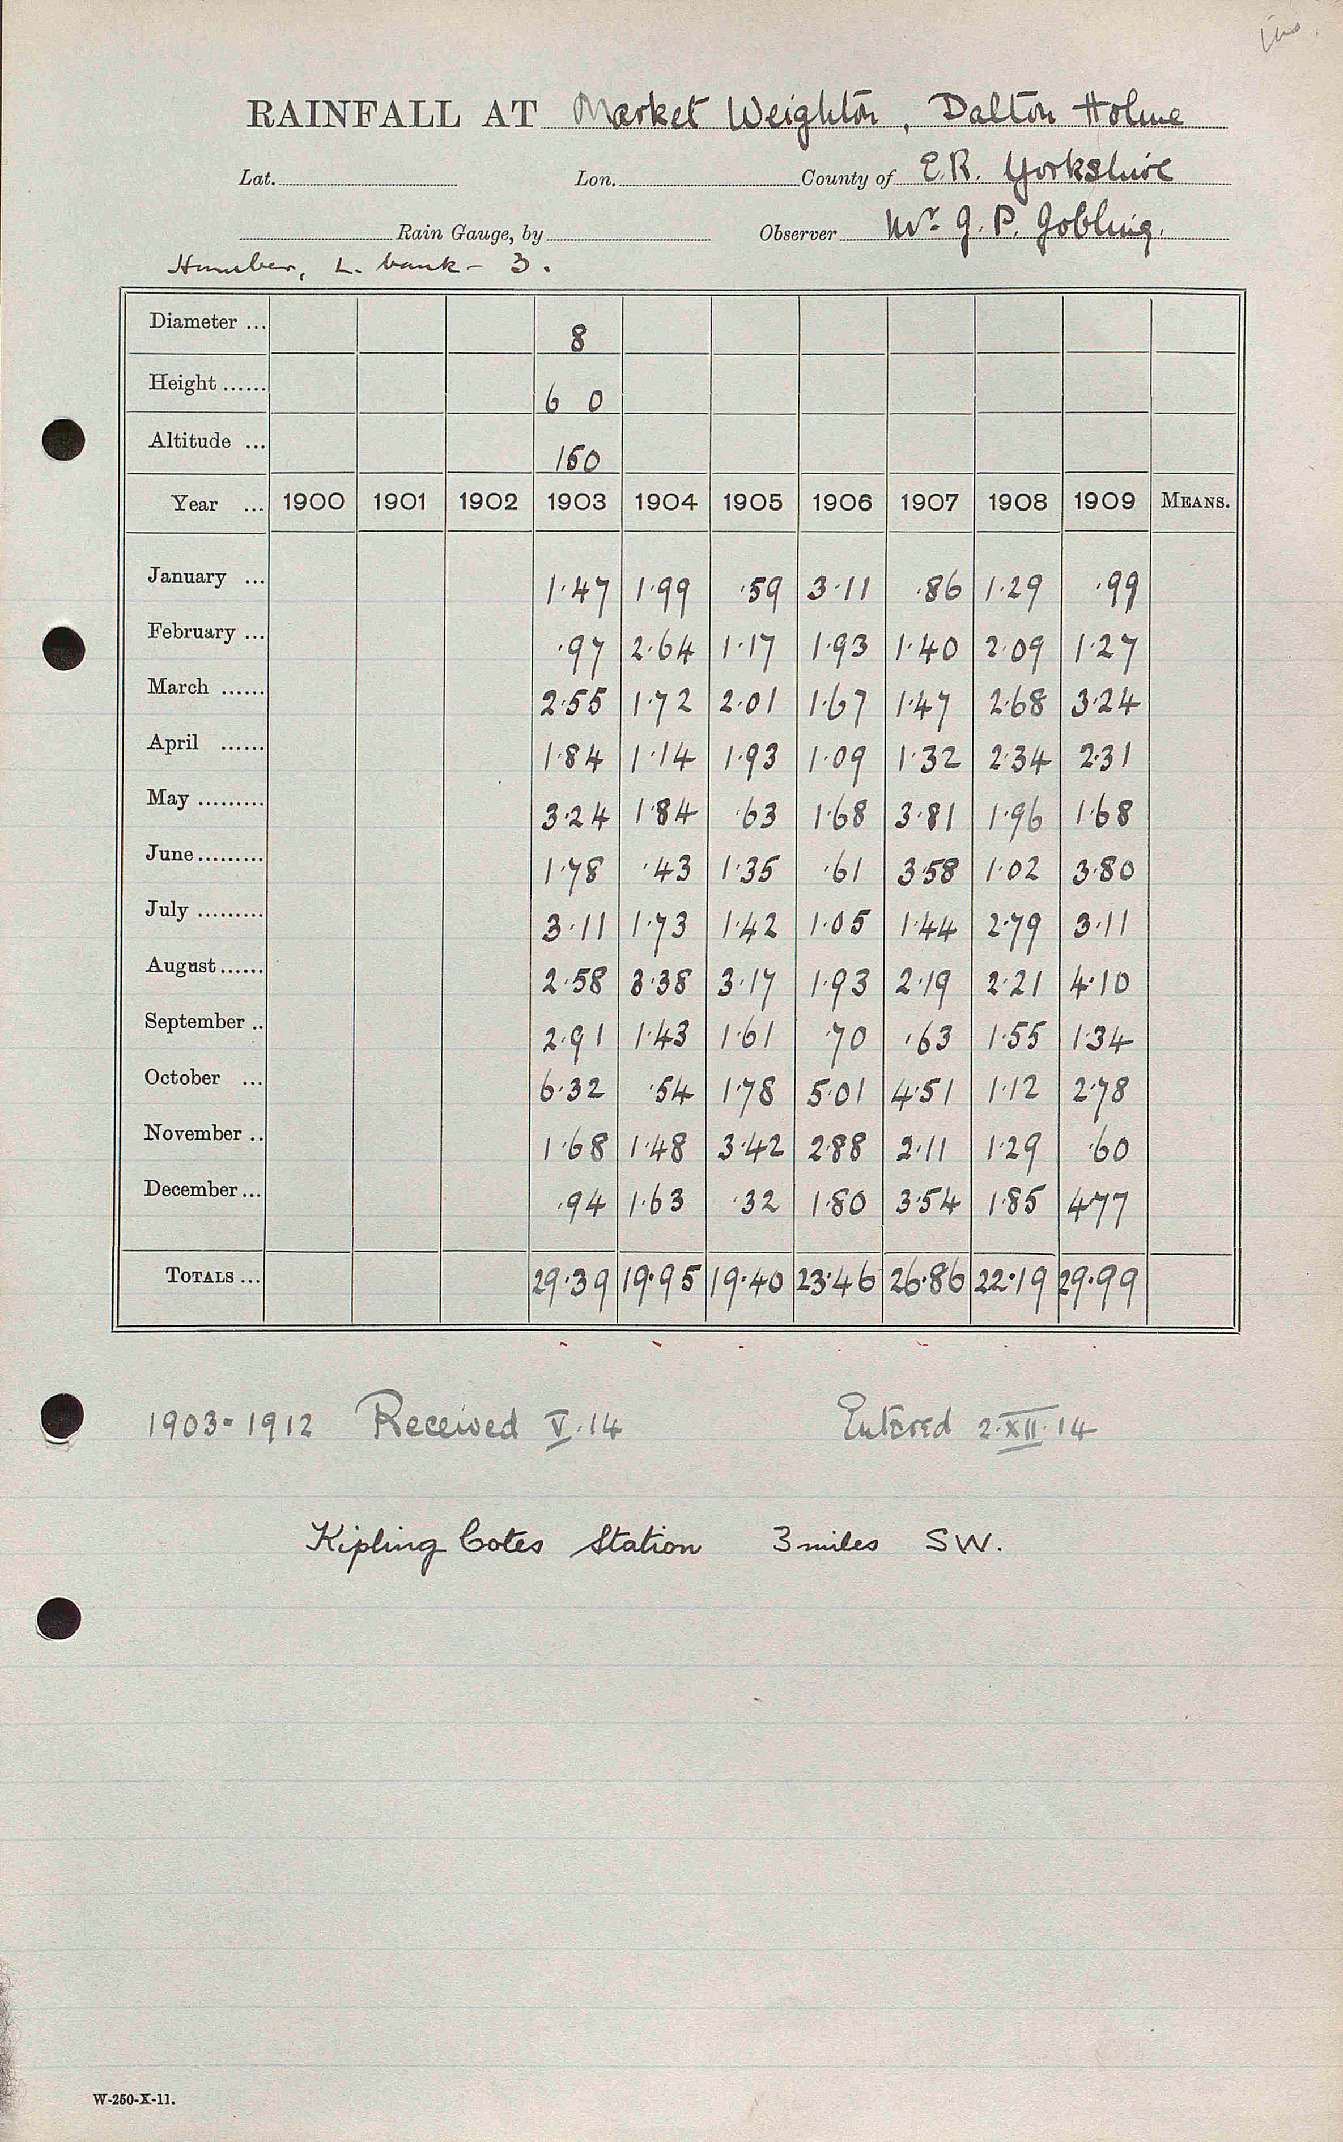 ins.
RAINFALL AT Market Weighton, Dalton Holme
Lat. Lon. County of E.R. Yorkshire
Rain Gauge, by Observer Mr. G. P. Gobling.
Humber, L. bank - 3.
Diameter ... 8
Height ...... 6 0
Altitude ... 150
Year ... 1900 1901 1902 1903 1904 1905 1906 1907 1908 1909 MEANS.
January ... 1.47 1.99 .59 3.11 .86 1.29 .99
February ... .97 2.64 1.17 1.93 1.40 2.09 1.27
March ...... 2.55 1.72 2.01 1.67 1.47 2.68 3.24
April ...... 1.84 1.14 1.93 1.09 1.32 2.34 2.31
May ......... 3.24 1.84 .63 1.68 3.81 1.96 1.68
June ......... 1.78 .43 1.35 .61 3.58 1.02 3.80
July ......... 3.11 1.73 1.42 1.05 1.44 2.79 3.11
August ...... 2.58 3.38 3.17 1.93 2.19 2.21 4.10
September .. 2.91 1.43 1.61 .70 .63 1.55 1.34
October ... 6.32 .54 1.78 5.01 4.51 1.12 2.78
November .. 1.68 1.48 3.42 2.88 2.11 1.29 .60
December ... .94 1.63 .32 1.80 3.54 1.85 4.77
TOTALS ... 29.39 19.95 19.40 23.46 26.86 22.19 29.99
1903-1912 Received V.14 Entered 2.XII.14
Kipling Cotes Station 3 miles SW.
W-250-X-11.